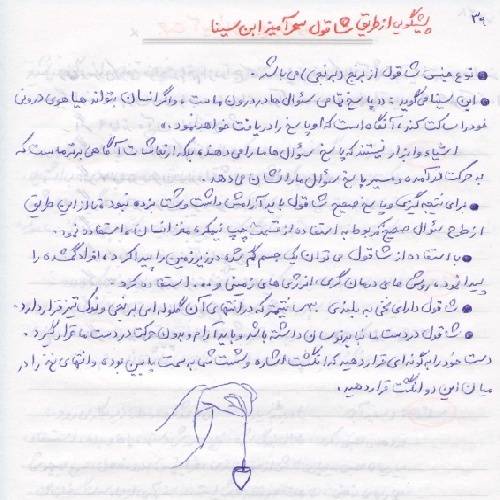 ۳۶
پیشگویی از طریق شاقول سحرآمیز ابن سینا
● نوع جنس شاقول از برنج (برنجی) می باشد.
● ابن سینا می گوید: «پاسخ تمامی سوال ها در درون ماست، و اگر انسان بتواند هیاهوی درونی
خود را ساکت کند، آنگاه است که او پاسخ را دریافت خواهد نمود.»
اشیاء و ابزار نیستند که پاسخ سوال ها ما را می دهند، بلکه ارتعاشات آگاهی برتر ماست که
به حرکت درآمده و مسیر پاسخ سوال ما را نشان می دهد.
● برای نتیجه گیری و پاسخ صحیح شاقول باید آرامش داشت و شتابزده نبود تا از این طریق
از طرح سوال صحیح که مربوط به استفاده از قسمت چپ نیمکره مغز انسان، استفاده نمود.
● با استفاده از شاقول می توان یک جسم گم شده در زیر زمین را پیدا کرد، افراد گمشده را
پیدا نمود، روش های درمان گری، انرژی های زمینی و .... استفاده کرد.
● شاقول دارای نخی به بلندی سانتیمتر که در انتهای آن گلوله ای برنجی و نوک تیز قرار دارد.
● شاقول در دست ما نباید نوسان داشته باشد و باید آرام و بدون حرکت در دست ما قرار گیرد.
دست خود را به گونه ای قرار دهید که انگشت اشاره و شست شما به سمت پایین بوده، و انتهای نخ را در
میان این دو انگشت قرار دهید.